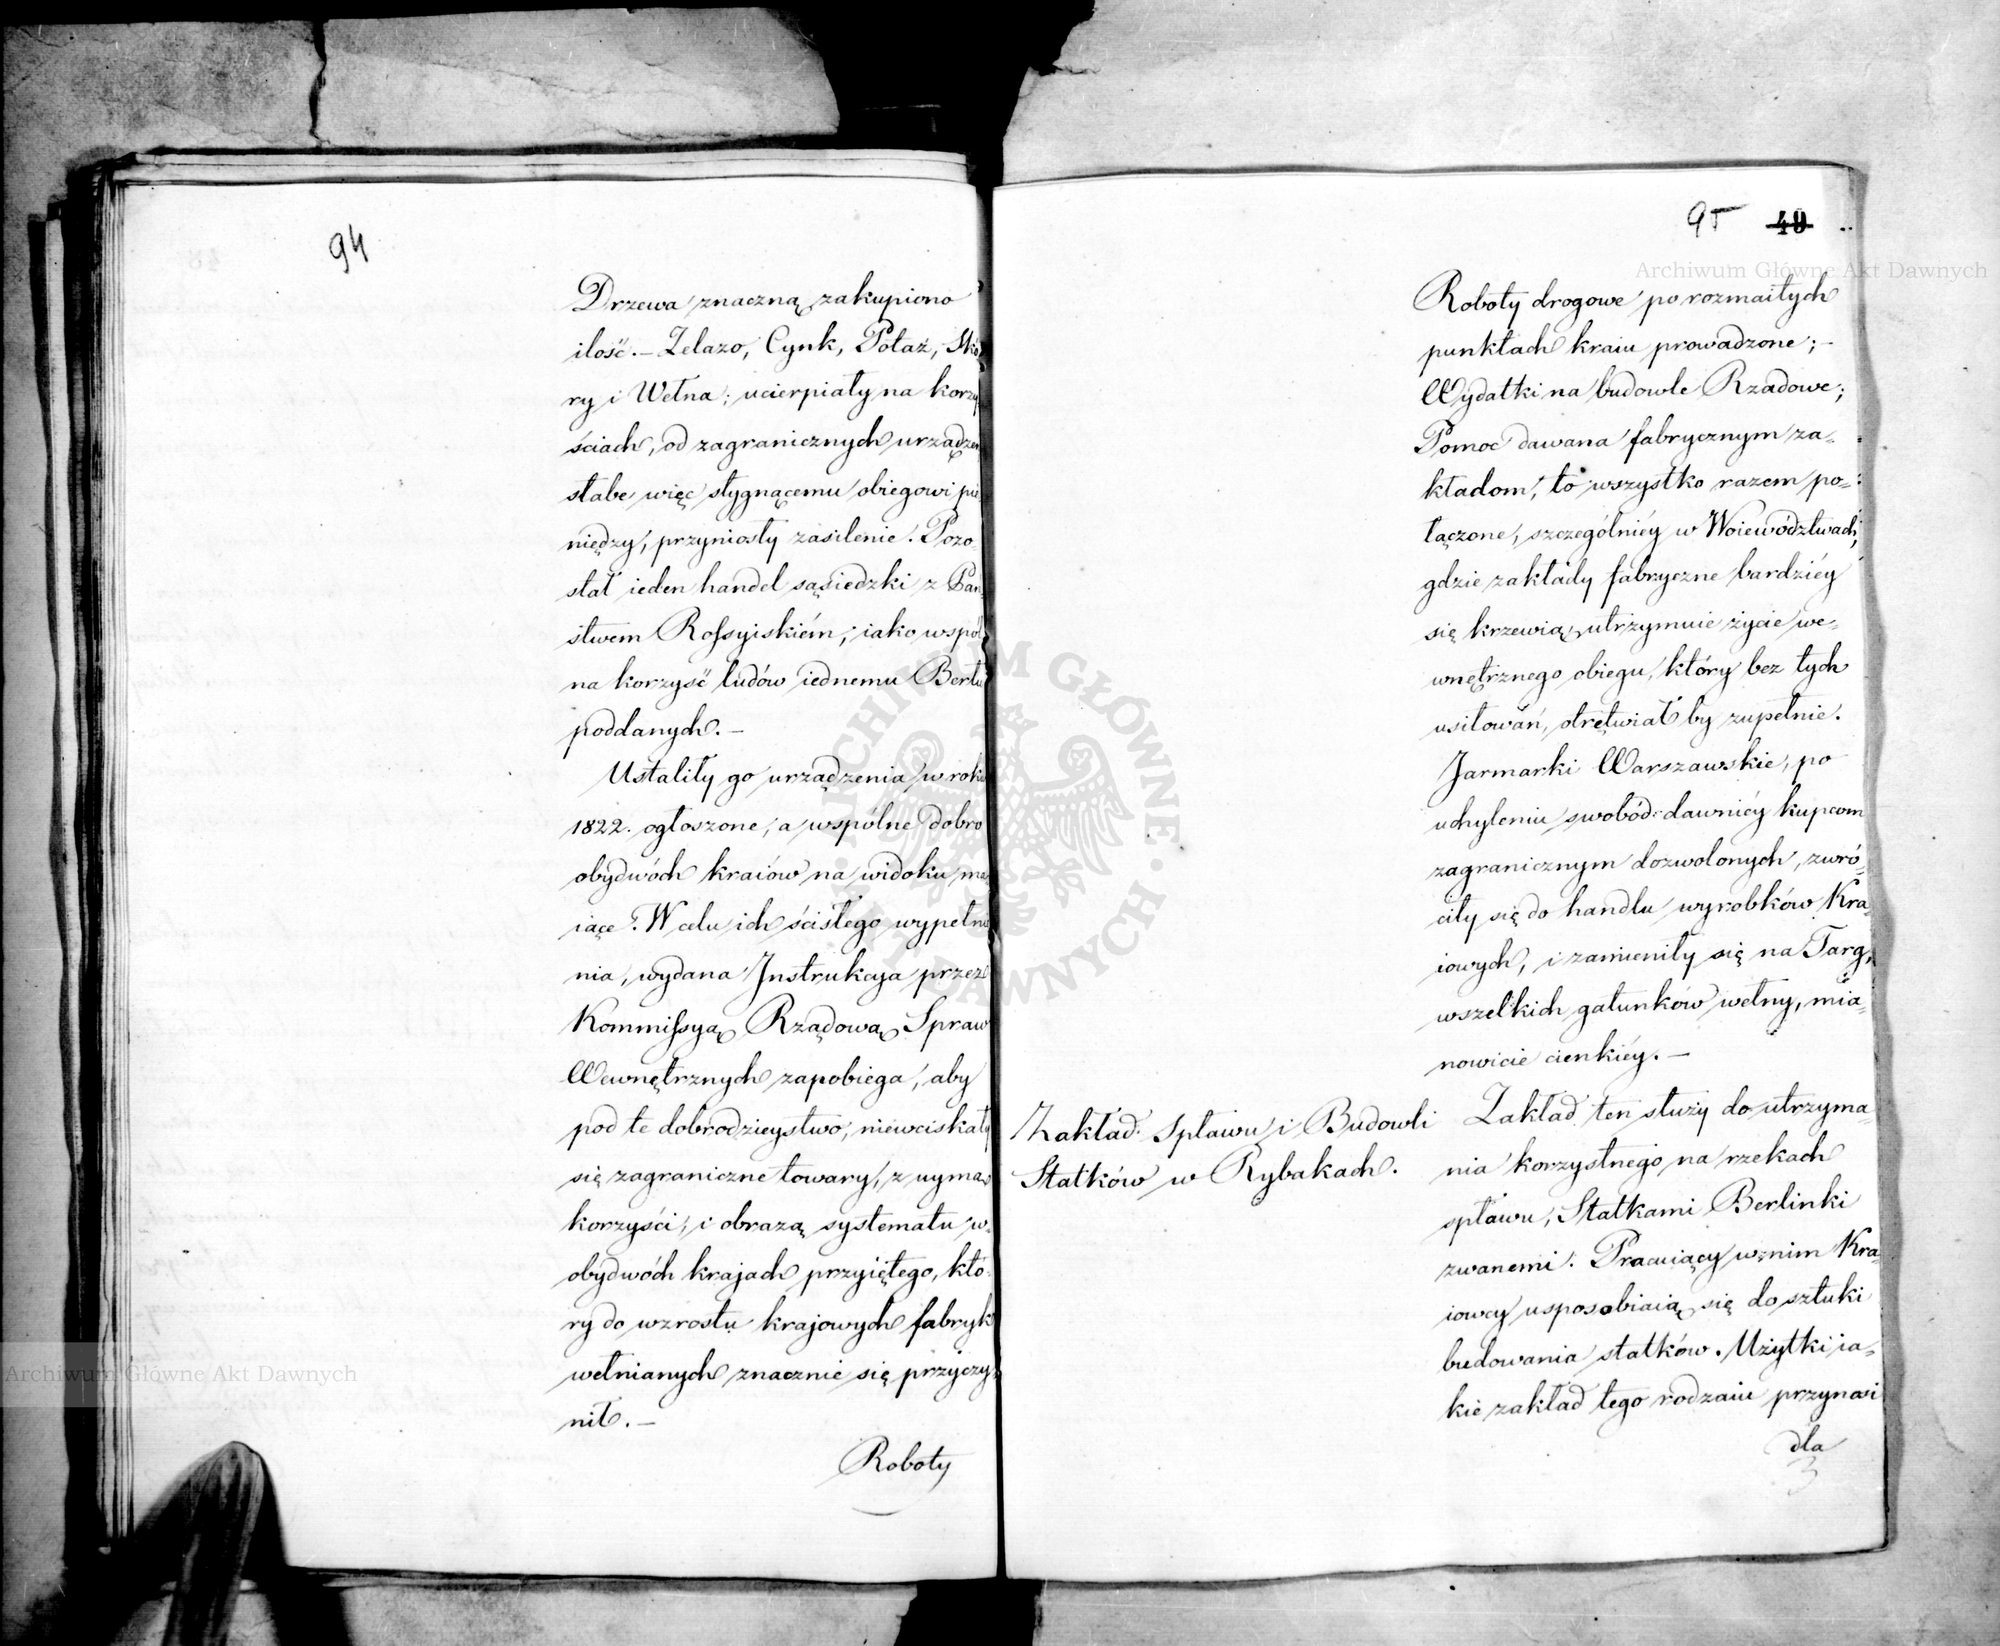 94
Drzewa znaczną zakupiono
ilość. – Żelazo, Cynk, Potaż, Skó
ry i Wełna; ucierpiały na korzy
ściach, od zagranicznych urządzeń
słabe więc stygnącemu obiegowi pie
niędzy, przyniosły zasilenie. Pozo-
stał ieden handel sąsiedzki z Pań-
stwem Rossyiskiém, iako wspól
na korzyść ludów iednemu Berłu
poddanych. –
Ustaliły go urządzenia w roku
1822. ogłoszone, a wspólne dobro
obydwóch kraiów na widoku ma
iące. W celu ich ścisłego wypełnie
nia, wydana Instrukcya przez
Kommissyą Rządową Spraw
Wewnętrznych zapobiega, aby
pod te dobrodzieystwo, niewciskały
się zagraniczne towary, z uymą
korzyści, i obrazą systematu w-
obydwóch krajach przyiętego, któ-
ry do wzrostu krajowych fabryk
wełnianych znacznie się przyczy-
nił. –
Roboty
95 49
Roboty drogowe po rozmaitych
punktach kraiu prowadzone; –
Wydatki na budowle Rządowe;
Pomoc dawana fabrycznym za-
kładom, to wszystko razem po-
łączone, szczególniéy w Woiewództwach,
gdzie zakłady fabryczne bardziéy
się krzewią, utrzymuie życie we-
wnętrznego obiegu, który bez tych
usiłowań, otrętwiał by zupełnie.
Jarmarki Warszawskie, po
uchyleniu swobód dawniéy kupcom
zagranicznym dozwolonych, zwró-
ciły się do handlu wyrobków Kra-
iowych, i zamieniły się na Targ,
wszelkich gatunków wełny, mia-
nowicie cienkiéy. –
Zakład Spławu i Budowli
Statków w Rybakach.
Zakład ten służy do utrzyma-
nia korzystnego na rzekach
spławu, Statkami Berlinki
zwanemi. Pracuiący w nim Kra-
iowcy usposobiaią się do sztuki
budowania statków. Użytki ia-
kie zakład tego rodzaiu przynosi
dla
Archiwum Główne Akt Dawnych
Archiwum Główne Akt Dawnych
ARCHIWUM GŁÓWNE · AKT DAWNYCH ·